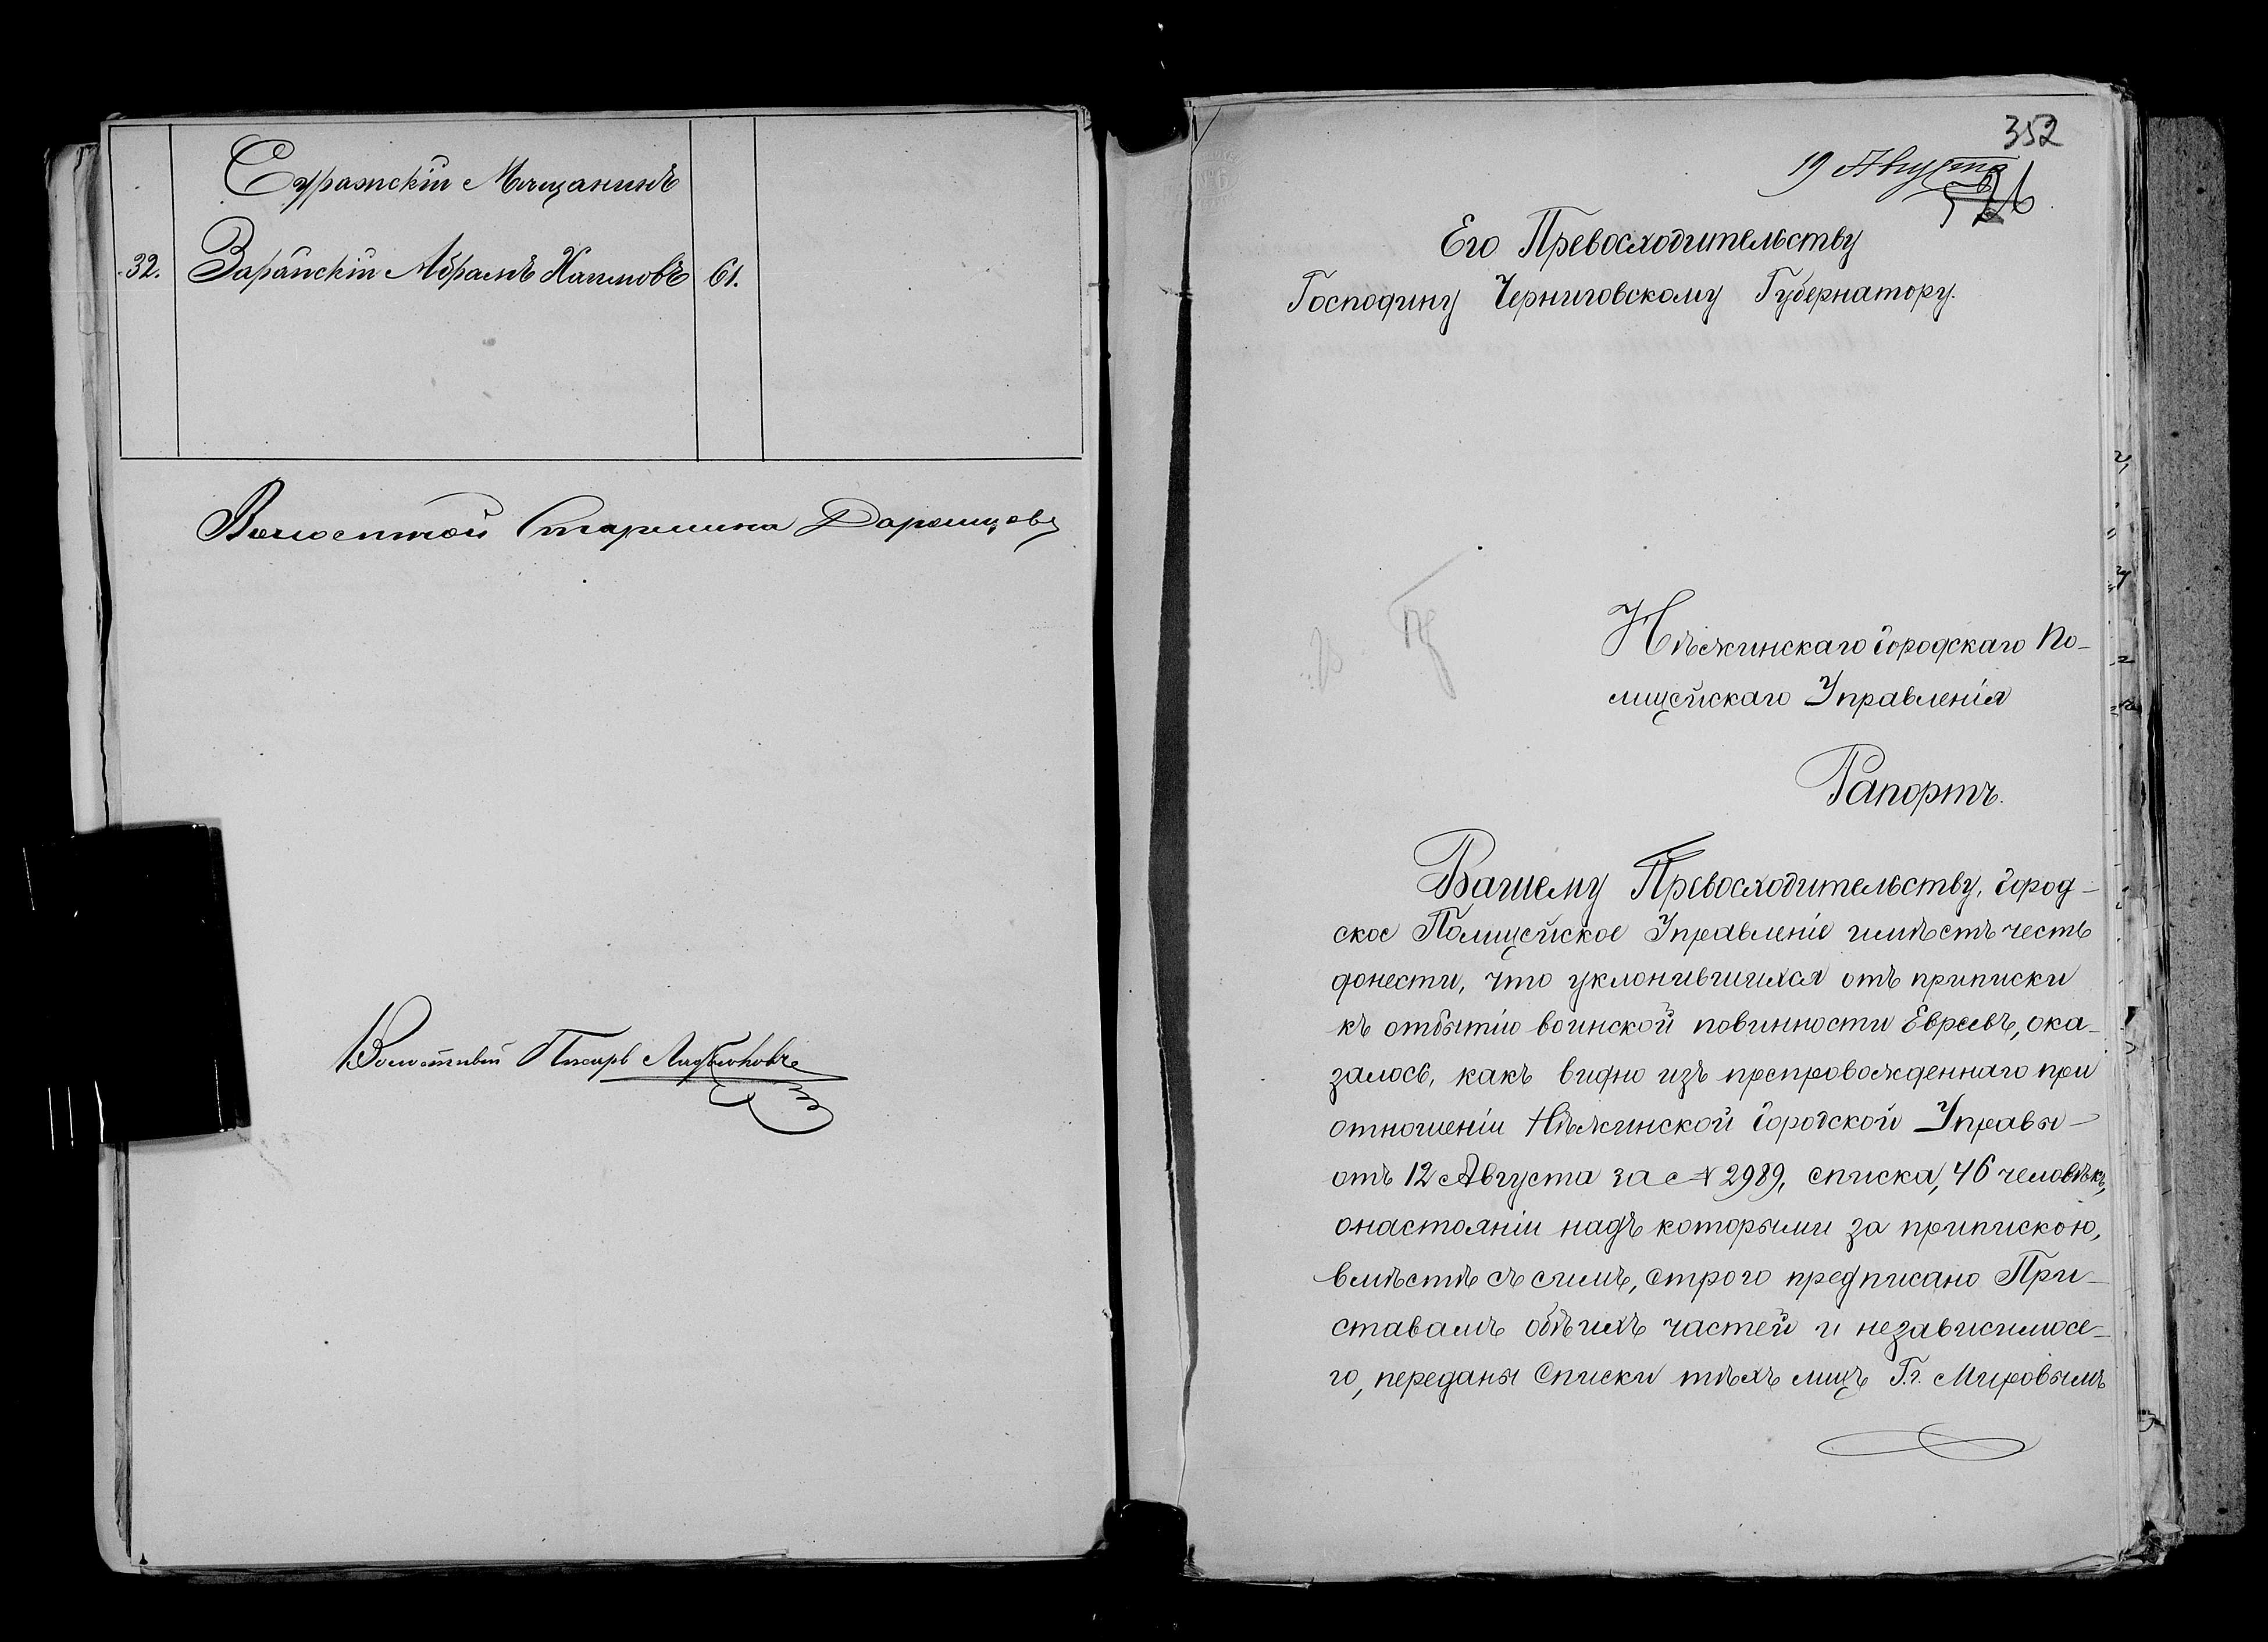 Суражскій Мѣщанинъ
32. Зарайскій Абрамъ Хаимовъ 61.
Волостной Старшина
Волостной Писарь
352
19 Августа
Его Превосходительству
Господину Черниговскому Губернатору.
Нѣжинскаго Городскаго По-
лицейскаго Управленія
Рапортъ.
Вашему Превосходительству, Город-
ское Полицейское Управленіе имѣетъ честь
донести, что уклонившихся отъ приписки
къ отбытію воинской повинности Евреевъ, ока-
залось, какъ видно изъ препровожденнаго при
отношеніи Нѣжинской Городской Управы
отъ 12 Августа за № 2989, списка, 46 человѣкъ,
онастояніи надъ которыми за припискою,
вмѣстѣ съ симъ, строго предписано При-
ставамъ обѣихъ частей и независимосе-
го, переданы Списки тѣхъ лицъ Г.г. Мировымъ